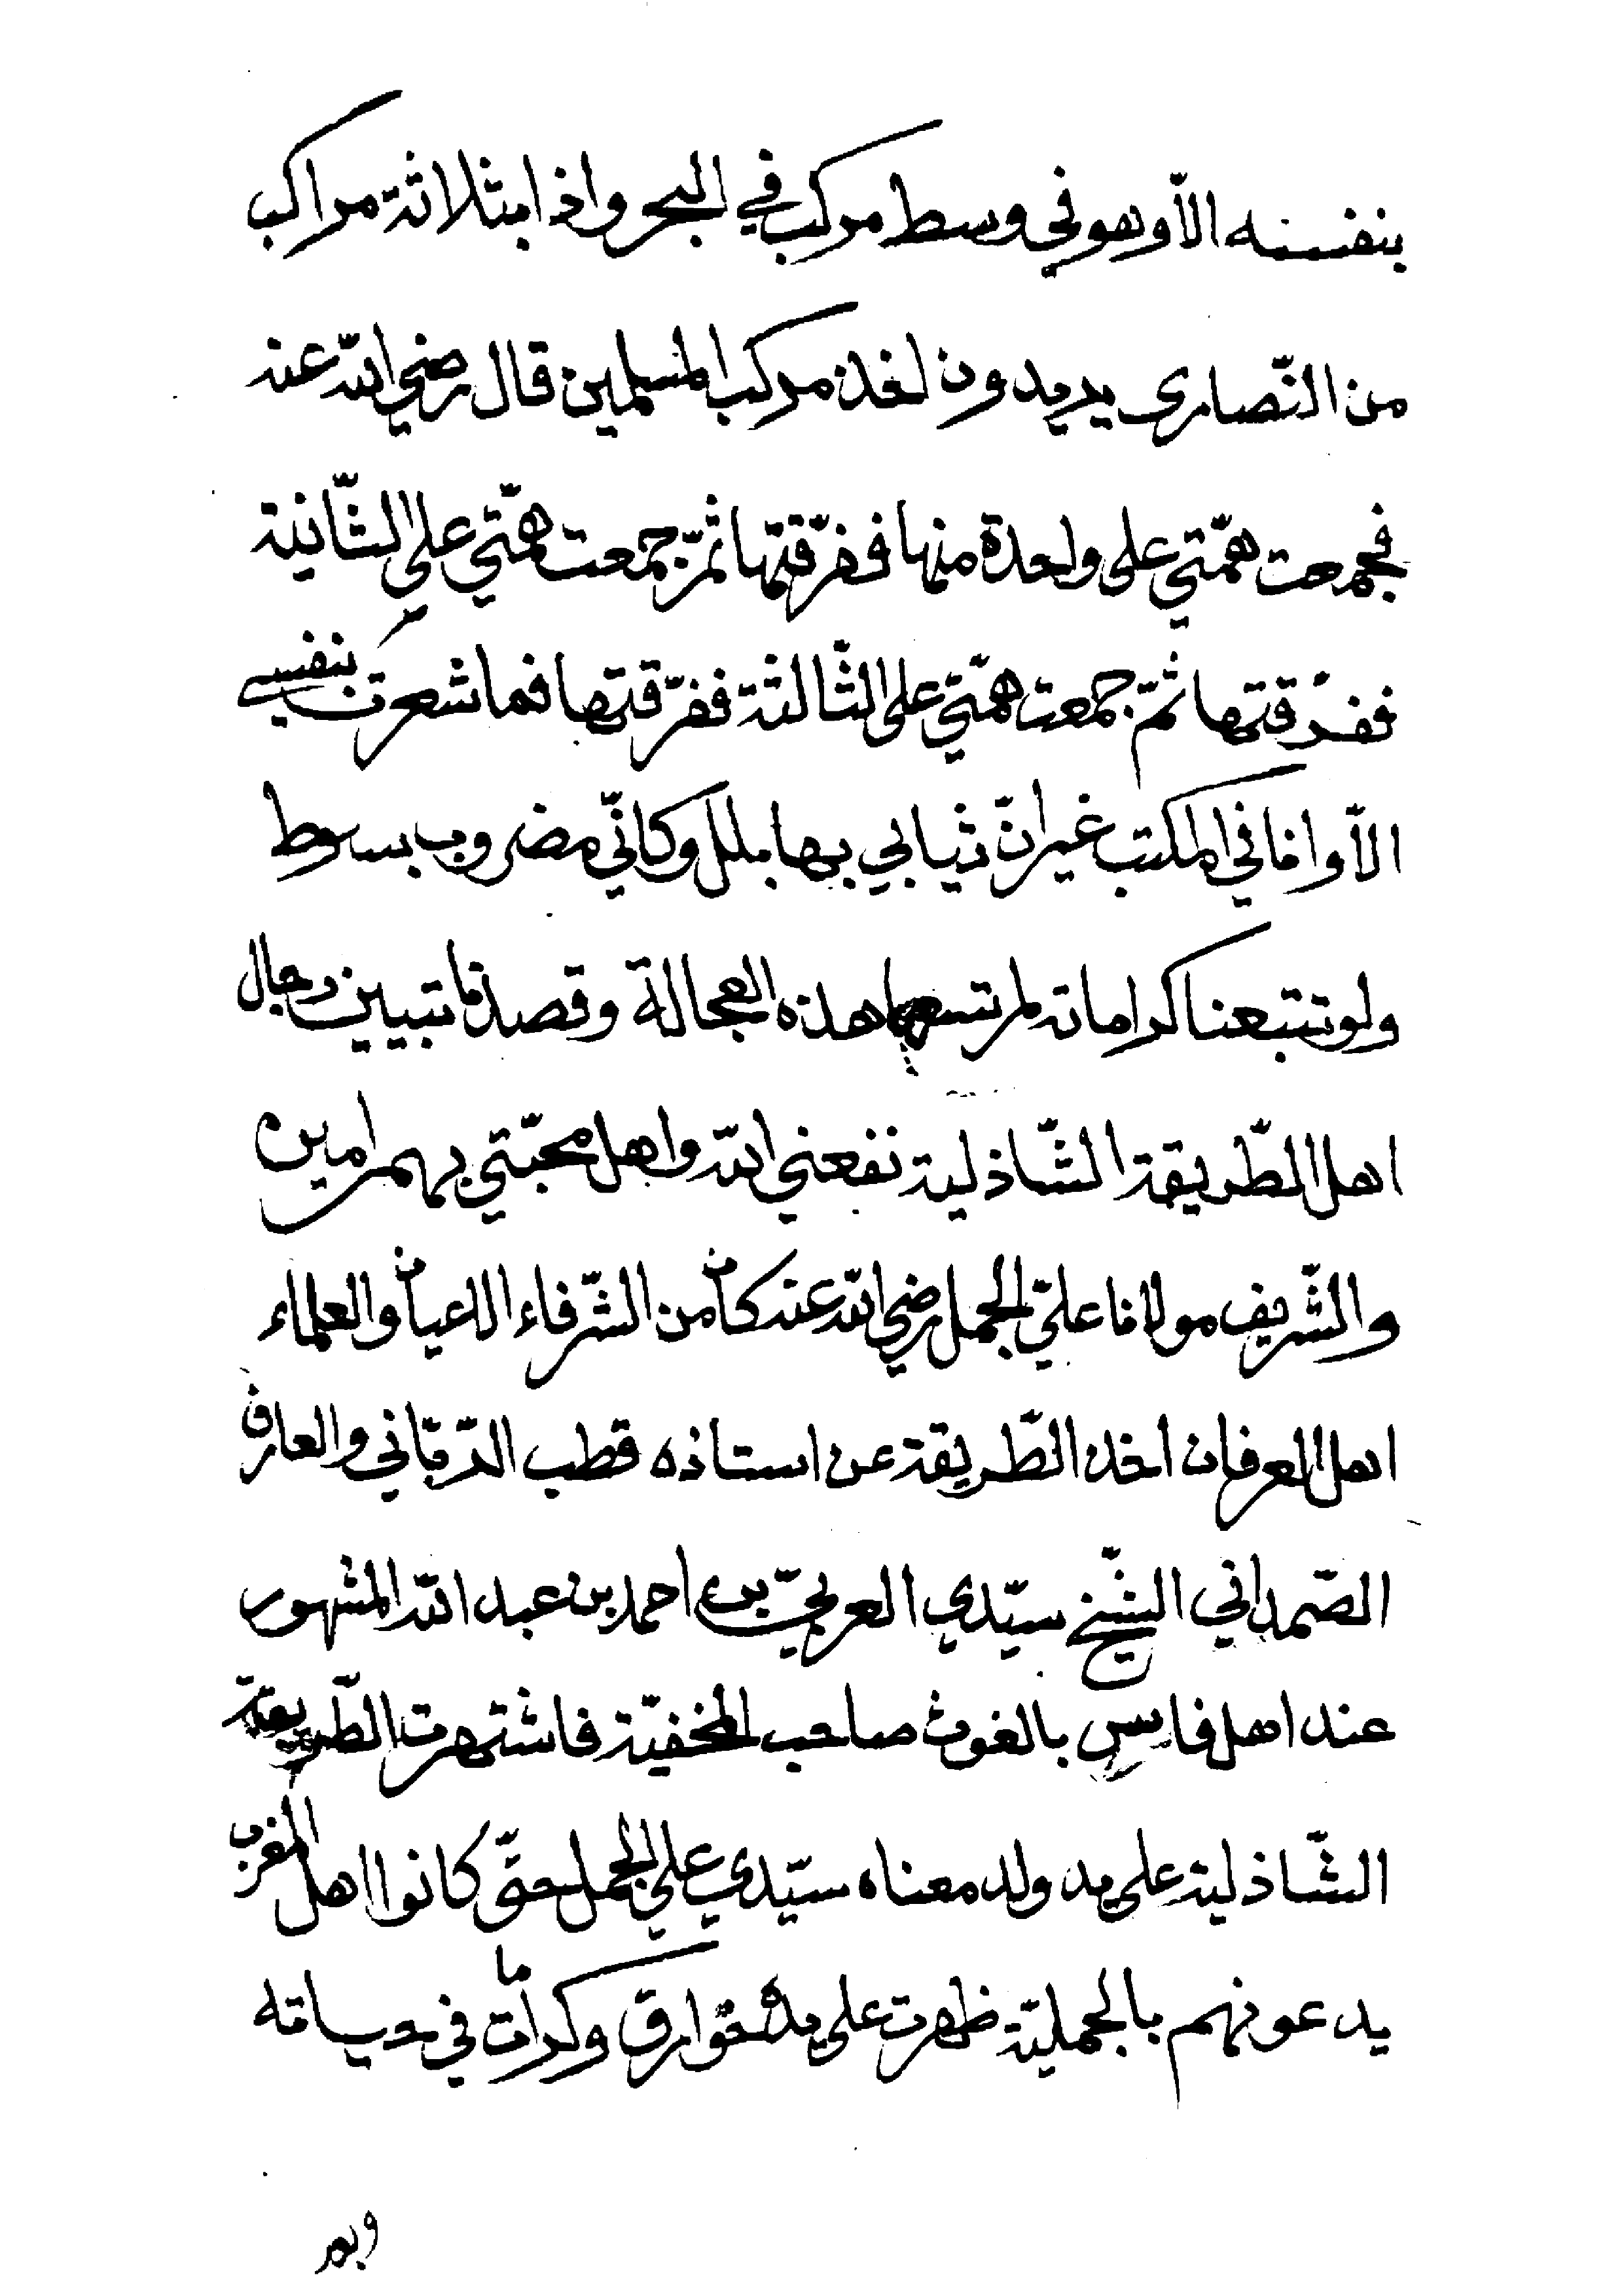 بنفسه الّا وهو في وسط مركب في البحر واذا بثلاثة مراكب
من النّصارى يريدون اخذ مركب المسلمين قال رضي الله عنه
فجمعت همّتي على واحدة منها ففرّقتها ثمّ جمعت همّتي على الثّانية
ففرّقتها ثمّ جمعت همّتي على الثّالثة ففرّقتها فما شعرت بنفسي
الّا وانا في المكتب غير انّ ثيابي بها بلل وكانّي مضروب بسوط
ولو تتبعنا كراماته لم تسعها هذه العجالة وقصدنا تبيين رجال
اهل الطّريقة الشّاذلية نفعني الله واهل محبّتي بهم امين
والشّريف مولانا عليّ الجمل رضي الله عنه كان من الشّرفاء الاعيان والعلماء
اهل العرفان اخذ الطّريقة عن استاذه قطب الرّبّاني والعارف
الصّمداني الشّيخ سيّدي العربيّ بن احمد بن عبد الله المشهور
عند اهل فاس بالغوث صاحب المخفيّة فاشتهرت الطّريقة
الشّاذلية على يد ولد معناه سيّدي علي الجمل حتّى كانوا اهل المغرب
يدعونهم بالجمليّة ظهرت على يده خوارق وكرامات في حياته
وبعد